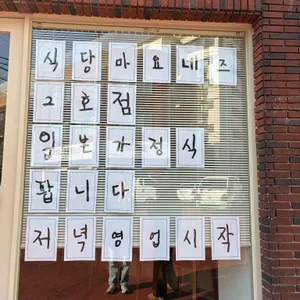 식당마요네즈
2호점
일본가정식
팝니다
저녁영업시작